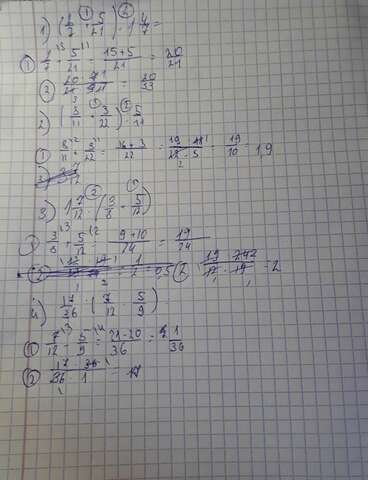 1) (5/7 + 5/21) : 1 4/7 =
① 5/7 + 5/21 = 15+5/21 = 20/21
② 20/21 · 7/11 = 20/33
2) (8/11 + 3/22) : 5/11
① 8/11 + 3/22 = 16+3/22 = 19·11/22·5 = 19/10 = 1,9
3) 1 7/12 : (3/8 + 5/12)
① 3/8 + 5/12 = 9+10/24 = 19/24
② 19/12 · 24/19 = 2
4) 17/36 : (7/12 - 5/9)
① 7/12 - 5/9 = 21-20/36 = 1/36
② 17/36 · 36/1 = 17